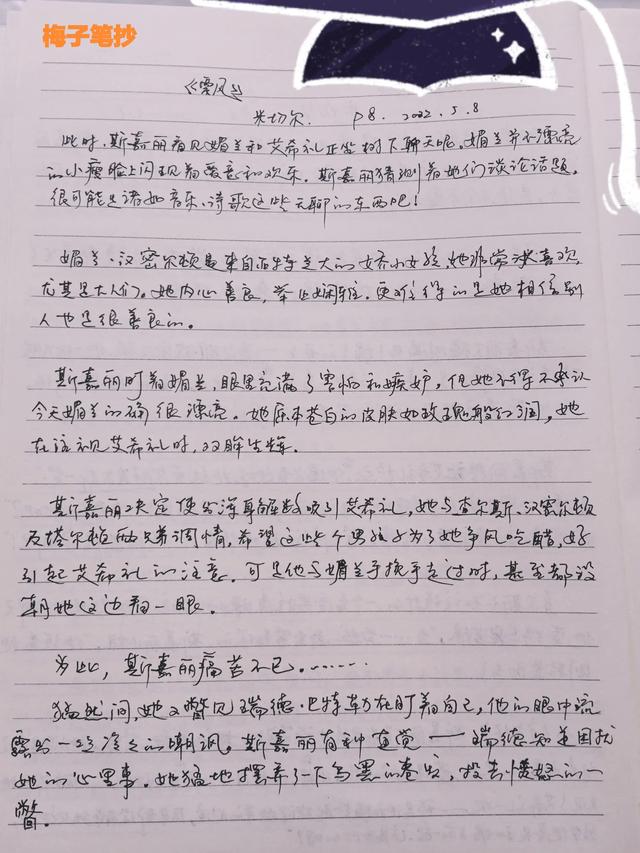 梅子笔抄
《飘风》
米切尔. P8. 2022.5.8
此时,斯嘉丽看见媚兰和艾希礼正坐树下聊天呢。媚兰并不漂亮
的小瘦脸上闪现着爱意和欢乐。斯嘉丽猜测着她们谈论话题,
很可能是诸如音乐、诗歌这些无聊的东西吧!
媚兰·汉密尔顿是来自亚特兰大的娇小女孩,她非常讨喜欢,
尤其是大人们。她内心善良,举止娴雅。更难得的是她相信别
人也是很善良的。
斯嘉丽盯着媚兰,眼里充满了害怕和嫉妒,但她不得不承认
今天媚兰的确很漂亮。她原本苍白的皮肤如玫瑰般红润,她
在注视艾希礼时,双眸生辉。
斯嘉丽决定使出浑身解数吸引艾希礼,她与查尔斯、汉密尔顿
及塔尔顿两兄弟调情,希望这些个男孩子为了她争风吃醋,好
引起艾希礼的注意。可是他与媚兰手挽手走过时,甚至都没
朝她这边看一眼。
为此,斯嘉丽痛苦不已。......
猛然间,她又瞥见瑞德·巴特勒在盯着自己,他的眼中流
露出一些冷冷的嘲讽。斯嘉丽有种直觉——瑞德知道困扰
她的心里事。她猛地摆弄了一下乌黑的卷发,投去愤怒的一
瞥。